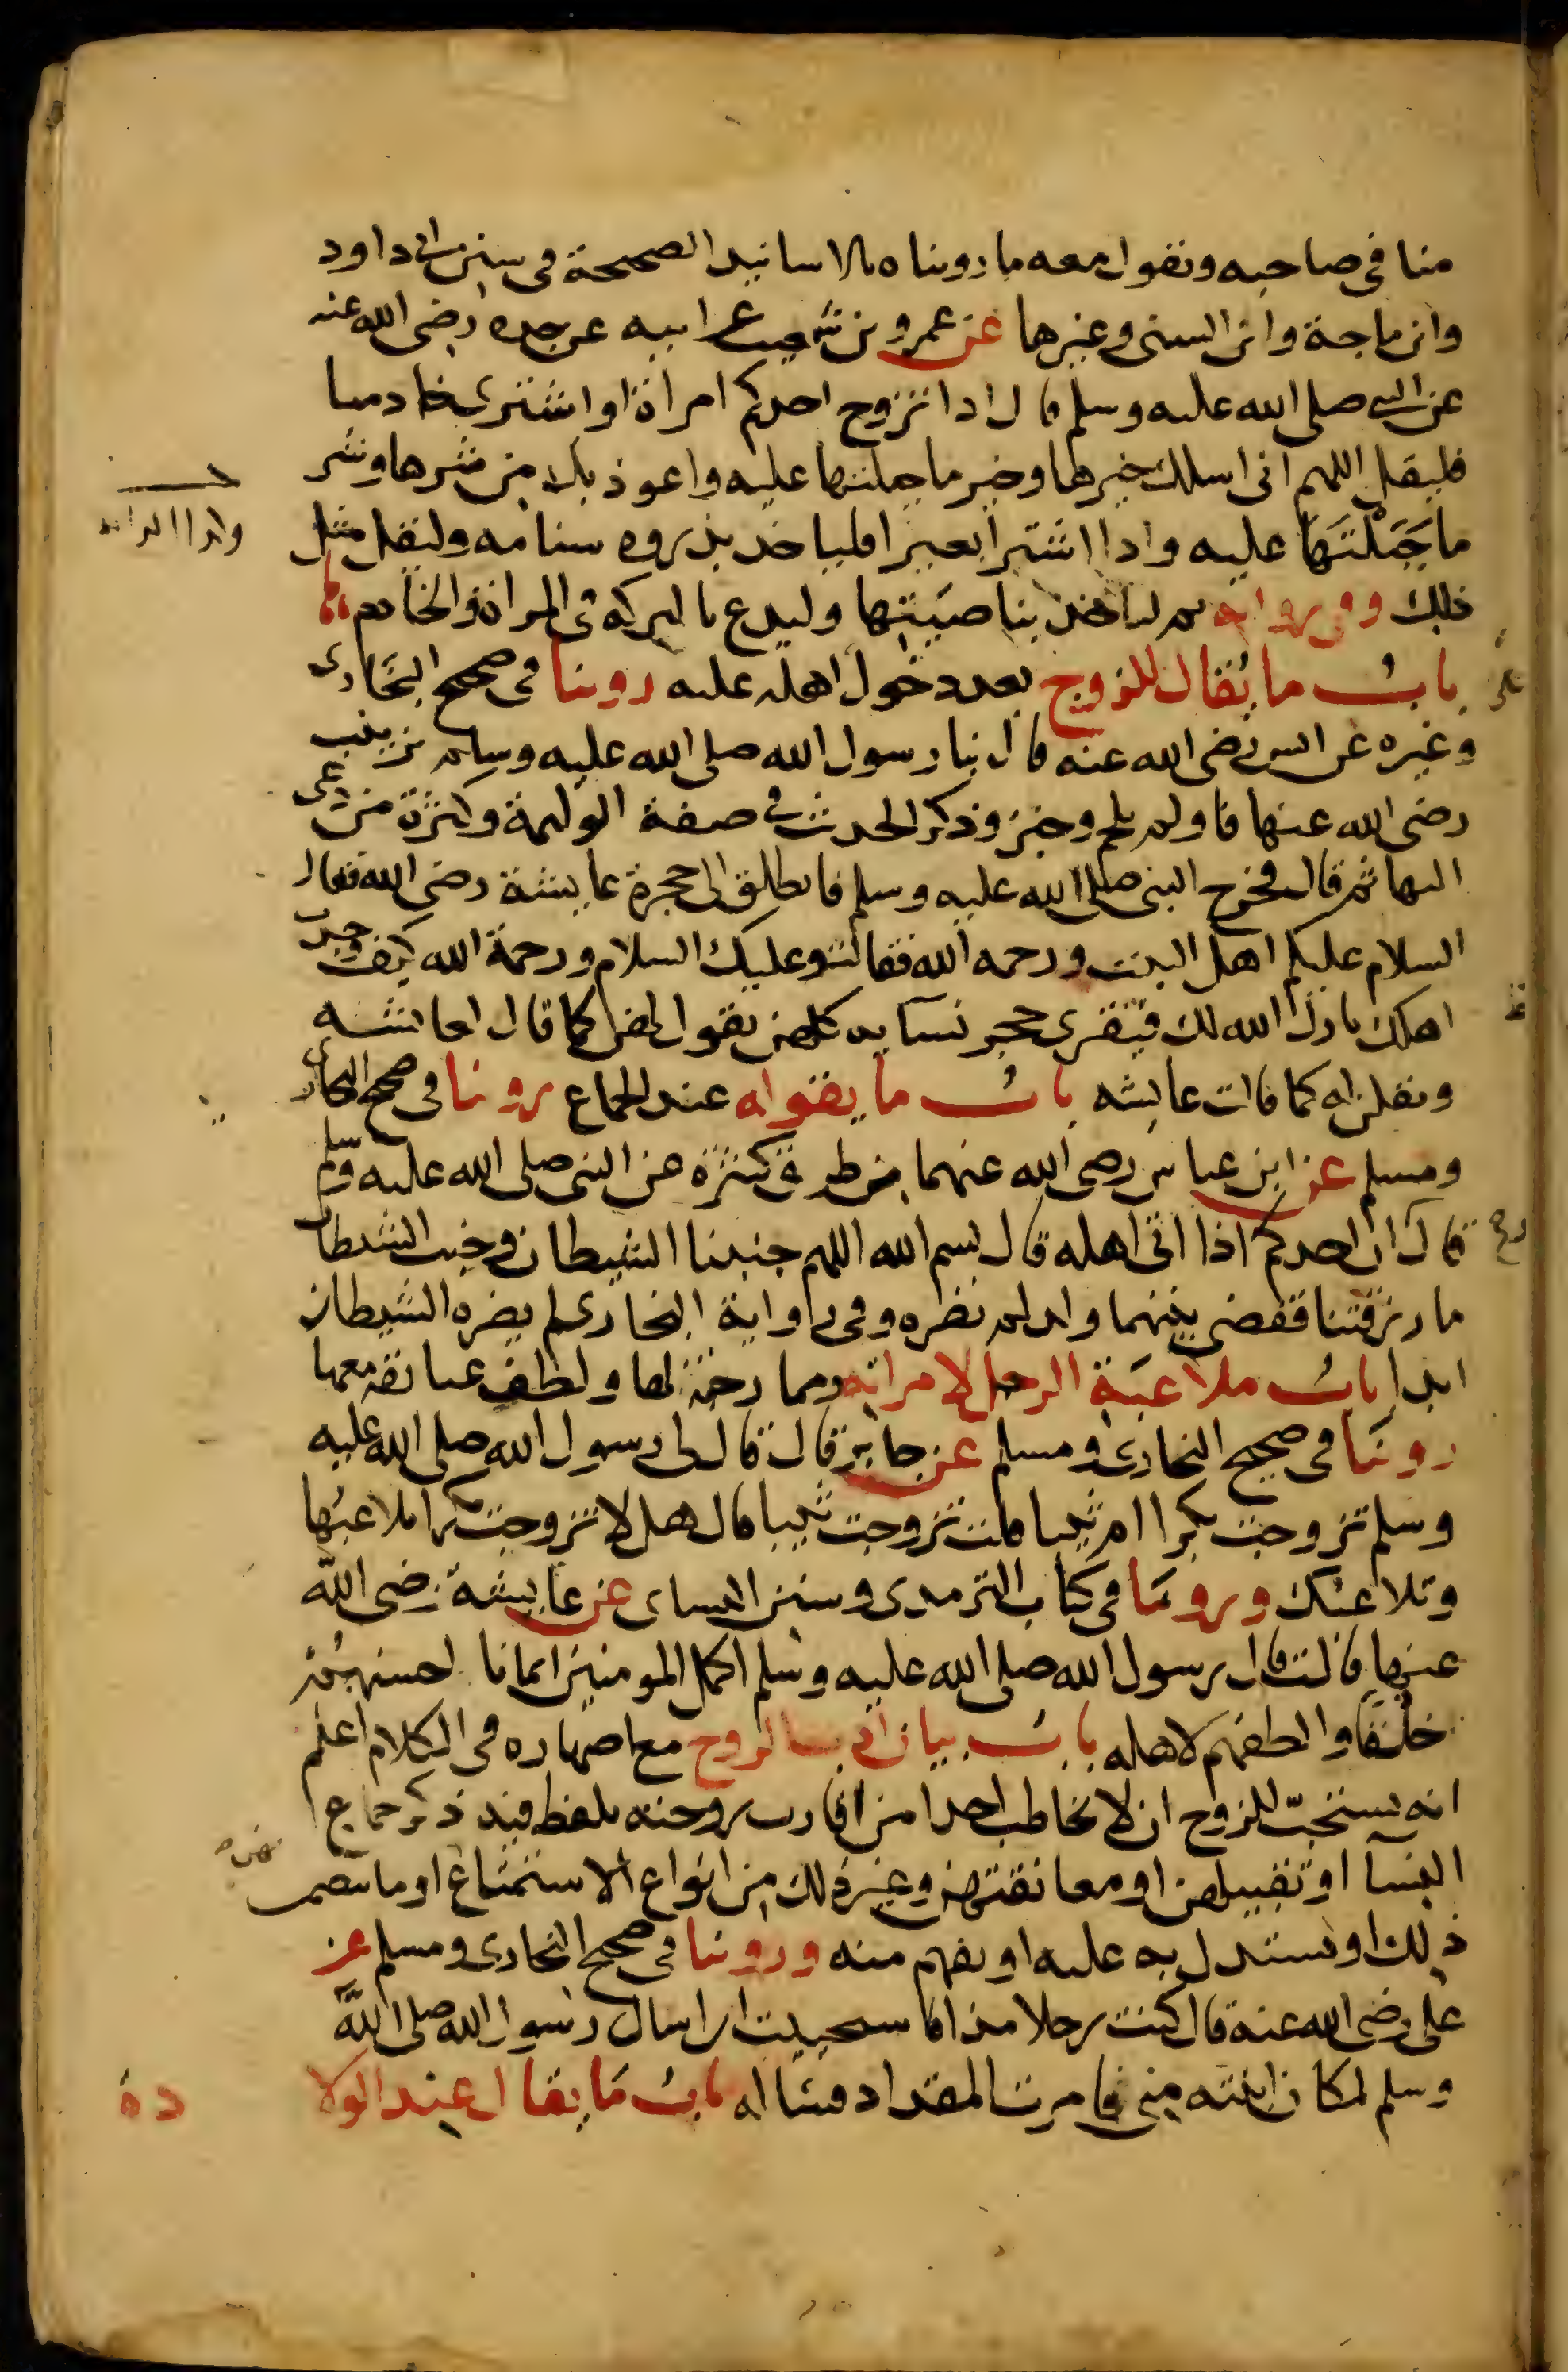 منا في صاحبه ونقول معه ما رويناه بالاسانيد الصحيحة في سنن ابي داود
وابن ماجة وابن السني وغيرها عن عمرو بن شعيب عن ابيه عن جده رضى الله عنه
عن النبي صلى الله عليه وسلم قال اذا تزوج احدكم امراة او اشترى خادما
فليقل اللهم انى اسلك خيرها وخير ما جبلتها عليه واعوذ بك من شرها وشر
ما جَبَلْتَهَا عليه واذا اشترا بعيرا فلياخذ بذروه سنامه وليقل مثل
ذلك وفى رواية ثم لياخذ بناصيتها وليدع بالبركة فى المراة والخادم
باب ما يُقال للزوج بعد دخول اهله عليه روينا فى صحيح البخارى
وغيره عن انس رضى الله عنه قال بنا رسول الله صلى الله عليه وسلم بزينب
رضى الله عنها فاولم بلحم وخبز وذكر الحديث في صفة الوليمة وكثرة من دعى
اليها ثم قال فخرج النبى صلى الله عليه وسلم فانطلق الى حجرة عايشة رضى الله فقال
السلام عليكم اهل البيت ورحمه الله فقالت وعليك السلام ورحمة الله كيف وجدت
اهلك بارك الله لك فتقرى حجر نسآيه كلهن يقول لهن كما قال لعائشه
ويقلن له كما قالت عايشه باب ما يقوله عند الجماع روينا فى صحيح البخارى
ومسلم عن ابن عباس رضى الله عنهما من طرق كثيرة عن النبى صلى الله عليه وسلم
قال لو ان احدكم اذا اتى اهله قال بسم الله اللهم جنبنا الشيطان وجنب الشيطان
ما رزقتنا فقضى بينهما ولد لم يضره وفى رواية البخارى لم يضره الشيطان
ابدا باب ملاعبَة الرجل لامراته وممازحته لها ولطف عبارته معها
روينا فى صحيح البخارى ومسلم عن جابر قال قال لى رسول الله صلى الله عليه
وسلم تزوجت بكرا ام ثيبا قلت تزوجت ثيبا قال هل لا تزوجت بكرا تلاعبُها
وتلاعبك وروينا فى كتاب الترمدى وسنن النساى عن عايشة رضى الله
عنها قالت قال رسول الله صلى الله عليه وسلم اكمل المومنين ايمانا احسنهم
خلُقًا والطفهم لاهله باب بيان ادب الزوج مع اصهاره فى الكلام اعلم
انه يستحبّ للزوج ان لا يخاطب احدا من اقارب زوجته بلفظ فيه ذكر جماع
النسآ او تقبيلهن او معانقتهن وغير ذلك من انواع الاستمتاع او ما يتضمن
ذلك او يستدل به عليه او يفهم منه وروينا فى صحيح البخارى ومسلم عن
على رضى الله عنه قال كنت رجلا مذا فاستحييت ان اسال رسول الله صلى الله
وسلم لمكان ابنته منى فامرت المقداد فساله باب مَا يقال عند الولا
دة